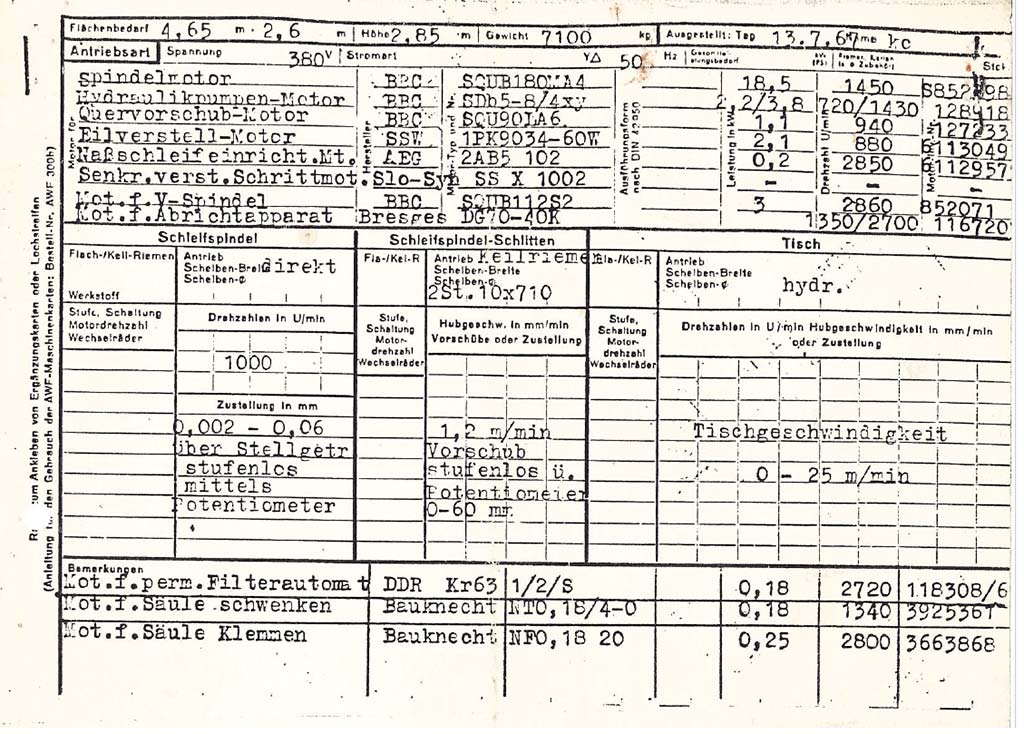 Flächenbedarf 4,65 m · 2,6 m Höhe 2,85 m Gewicht 7100 kg Ausgestellt: Tag 13.7.67 Name kc
Antriebsart Spannung 380 V Stromart Y△ 50 Hz Stck
Motor für Hersteller Motor-Typ und Ausführungsform nach DIN 42950 Leistung in kW Drehzahl U/min
Spindelmotor BBC SQUB180MA4 18,5 1450
Hydraulikpumpen-Motor BBC SDb5-8/4xy 2,2/3,8 720/1430 128918
Quervorschub-Motor BBC SQU90LA6 1,1 940 127233
Eilverstell-Motor SSW 1PK9034-60W 2,1 880 6113049
Naßschleifeinricht.Mt. AEG 2AB5 102 0,2 2850 6112957
Senkr.verst.Schrittmot. Slo-Syn SS X 1002 - -
Mot.f.V-Spindel BBC SQUB112S2 3 2860 852071
Mot.f.Abrichtapparat Bresges DG70-40K 1350/2700 116720
Schleifspindel Schleifspindel-Schlitten Tisch
Flach-/Keil-Riemen Antrieb direkt Fla-/Kei-R Antrieb Keilrieme Fla-/Kei-R Antrieb
Scheiben-Breite Scheiben-Breite Scheiben-Breite
Scheiben-Ø Scheiben-Ø Scheiben-Ø hydr.
Werkstoff 2St. 10x710
Stufe, Schaltung Motordrehzahl Wechselräder Drehzahlen in U/min Stufe, Schaltung Motor-drehzahl Wechselräder Hubgeschw. in mm/min Vorschübe oder Zustellung Stufe, Schaltung Motor-drehzahl Wechselräder Drehzahlen in U/min Hubgeschwindigkeit in mm/min oder Zustellung
1000
Zustellung in mm
0,002 - 0,06 1,2 m/min Tischgeschwindigkeit
über Stellgetr Vorschub
stufenlos stufenlos ü. 0 - 25 m/min
mittels Potentiometer
Potentiometer 0-60 mm
Bemerkungen
Mot.f.perm.Filterautomat DDR Kr63 1/2/S 0,18 2720 118308/6
Mot.f.Säule schwenken Bauknecht NTO,18/4-0 0,18 1340 3925361
Mot.f.Säule Klemmen Bauknecht NFO,18 20 0,25 2800 3663868
zum Ankleben von Ergänzungskarten oder Lochstreifen
den Gebrauch der AWF-Maschinenkarten: Bestell-Nr. AWF 300b)